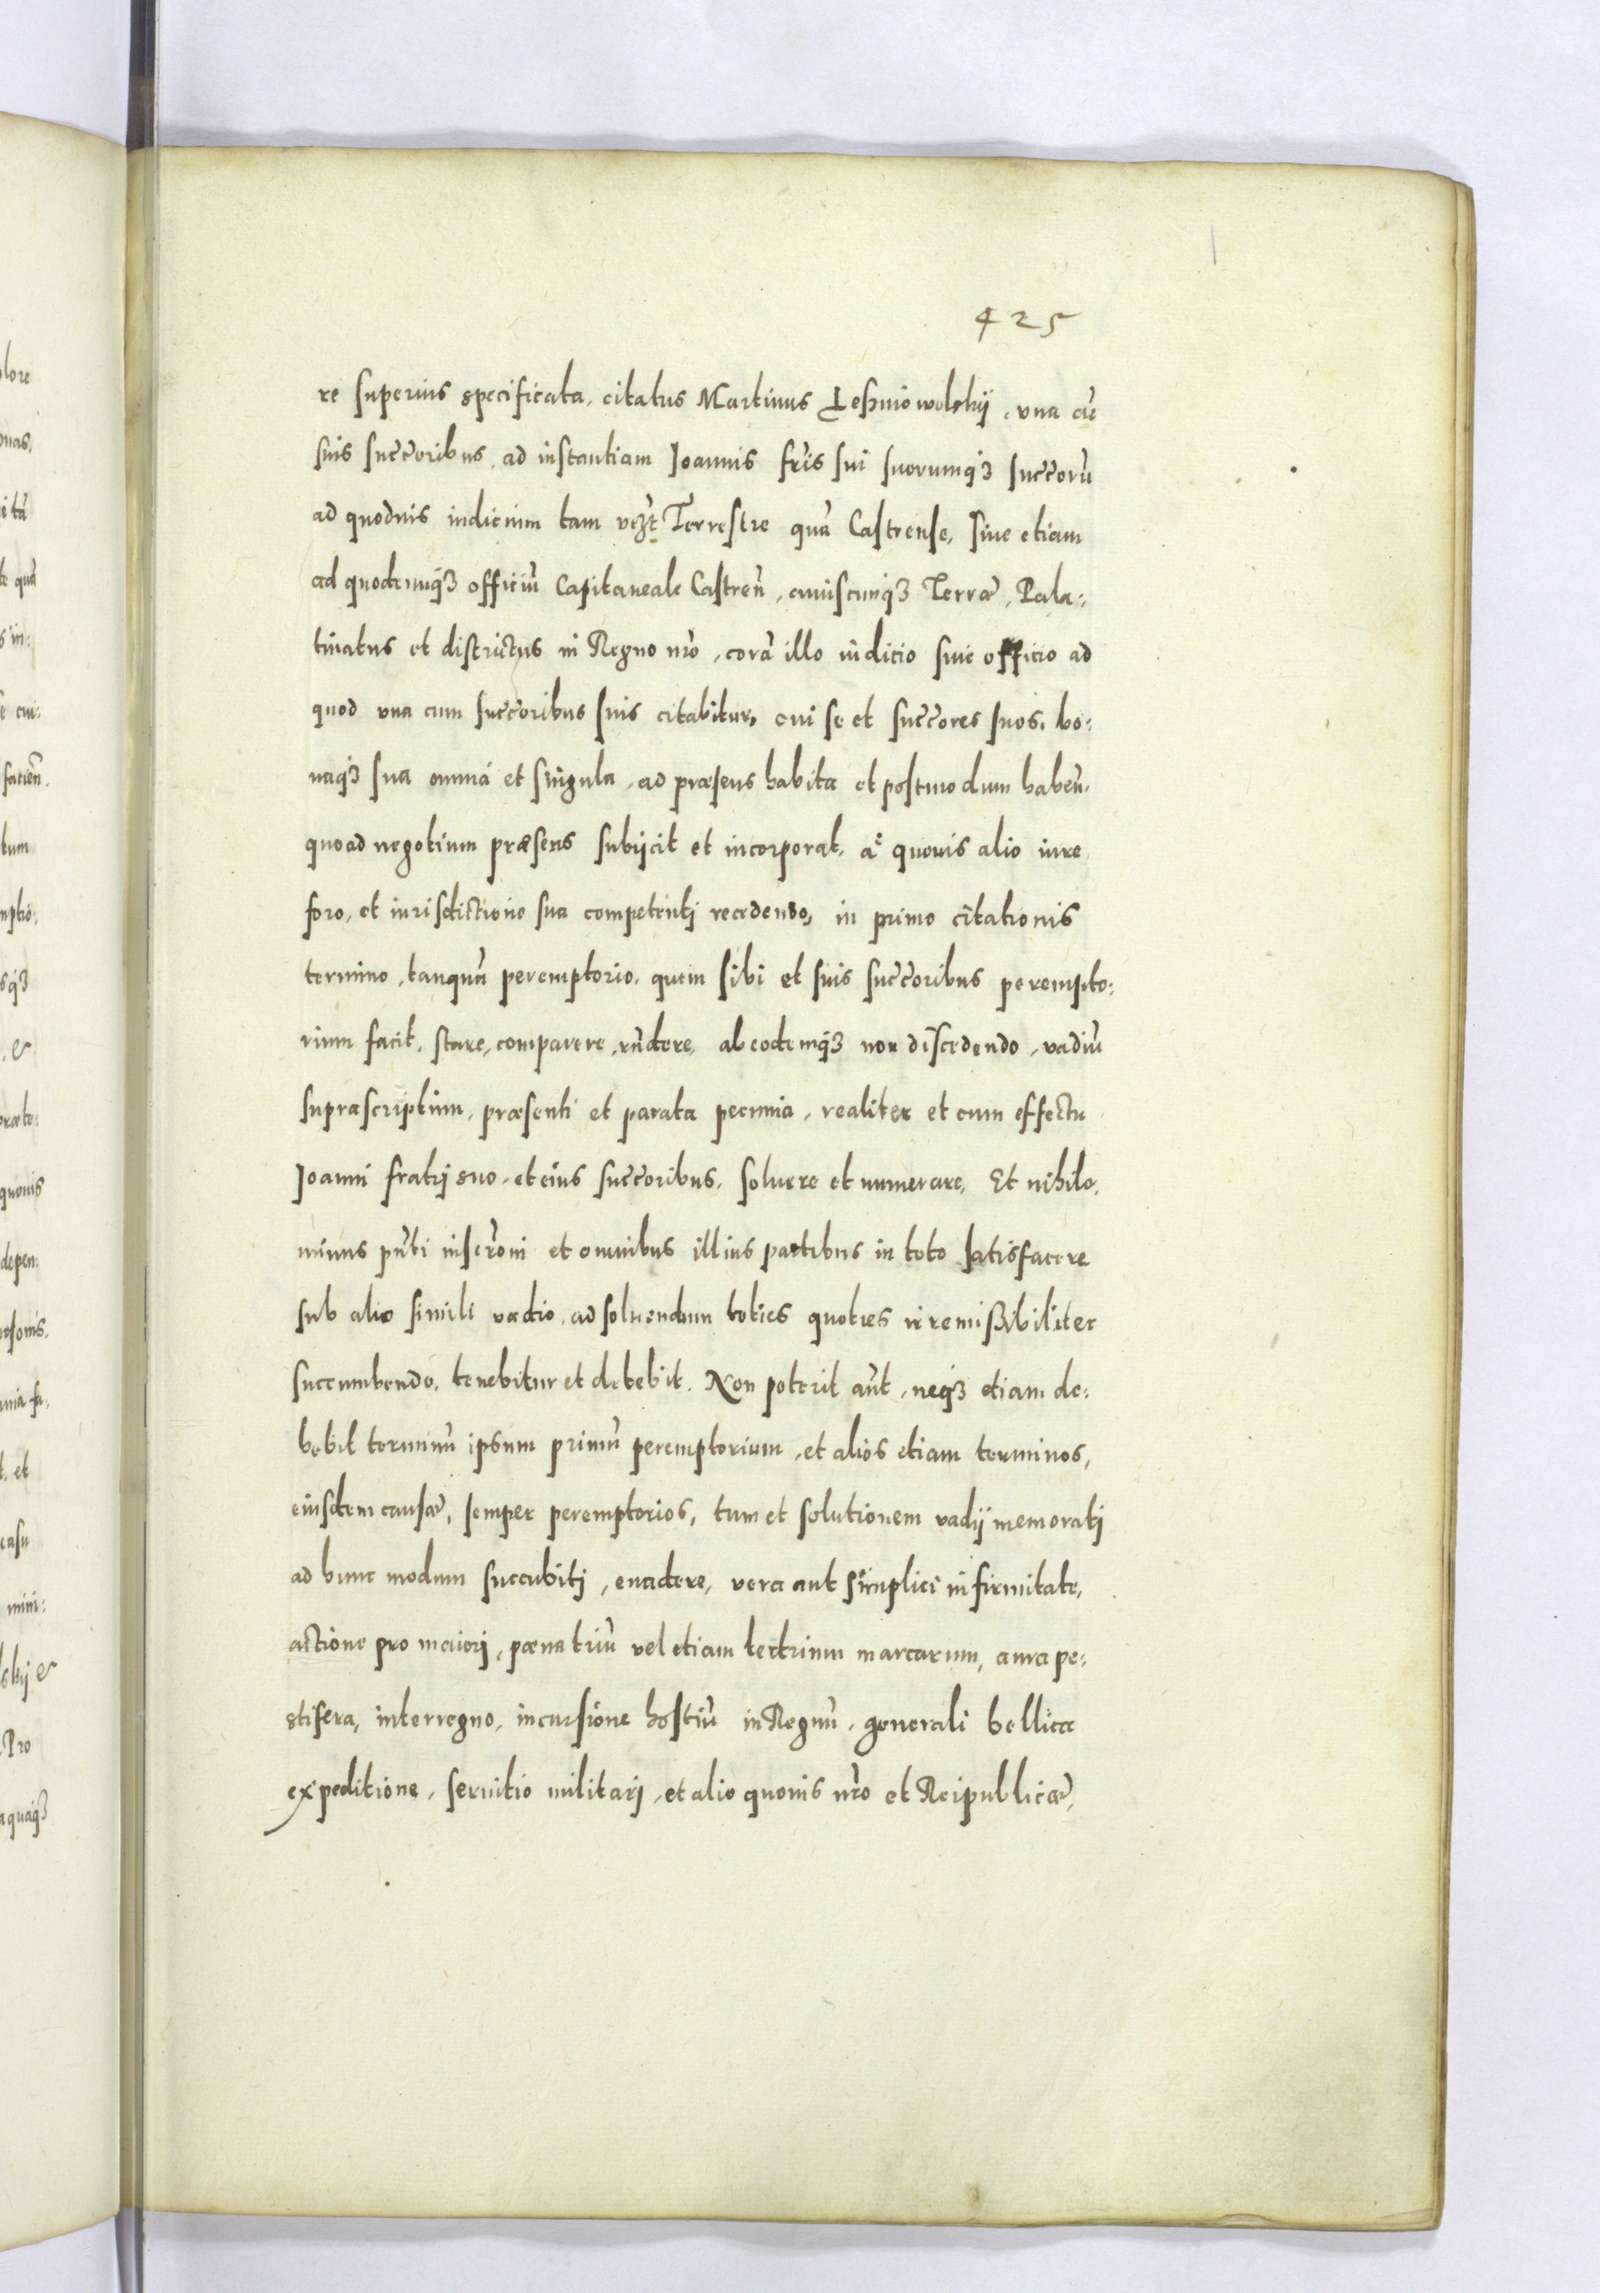 425
re superius specificata, citatus Martinus Leśniowolskÿ, una cũ
suis succ̃oribus, ad instantiam Joannis fr̃is sui suorumq̃ succ̃orũ
ad quoduis iudicium tam Terrestre quã Castrense, siue etiam
ad quodcunq̃ officiũ Capitaneale Castreñ, cuiuscunq̃ Terræ, Pala:
tinatus et districtus in Regno nr̃o, corã illo iudicio siue officio ad
quod una cum succ̃oribus suis citabitur, cui se et succ̃ores suos, bo:
naq̃ sua omnia et singula, ad præsens habita et postmodum habeñ.
quoad negotium præsens subijcit et incorporat, à quouis alio iure
foro, et iurisdictione sua competenti recedendo, in primo citationis
termino, tanquã peremptorio, quem sibi et suis succ̃oribus perempto:
rium facit, stare, comparere, rñdere, ab eodemq̃ non discedendo, vadiũ
suprascriptum, præsenti et parata pecunia, realiter et cum effectu
Joanni fratri suo, et eius succ̃oribus, soluere et numerare, Et nihilo,
minus pñti inscr̃oni et omnibus illius partibus in toto satisfacere
sub alio simili vadio, ad soluendum toties quoties irremißibiliter
succumbendo, tenebitur et debebit. Non poterit aũt, neq̃ etiam de:
bebit terminũ ipsum primũ peremptorium, et alios etiam terminos,
eiusdem causæ, semper peremptorios, tum et solutionem vadÿ memorati
ad hunc modum succubiti, euadere, vera aut simplici infirmitate,
actione pro maiori, pæna triũ vel etiam tertrium marcarum, aura pe:
stifera, interregno, incursione hostiũ in Regnũ, generali bellica
expeditione, seruitio militari, et alio quouis nr̃o et Reipublicæ,